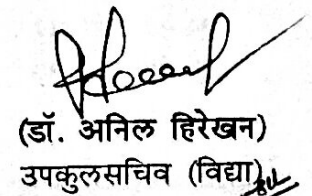 (डॉ. अनिल हिरेखन)
उपकुलसचिव (विद्या)